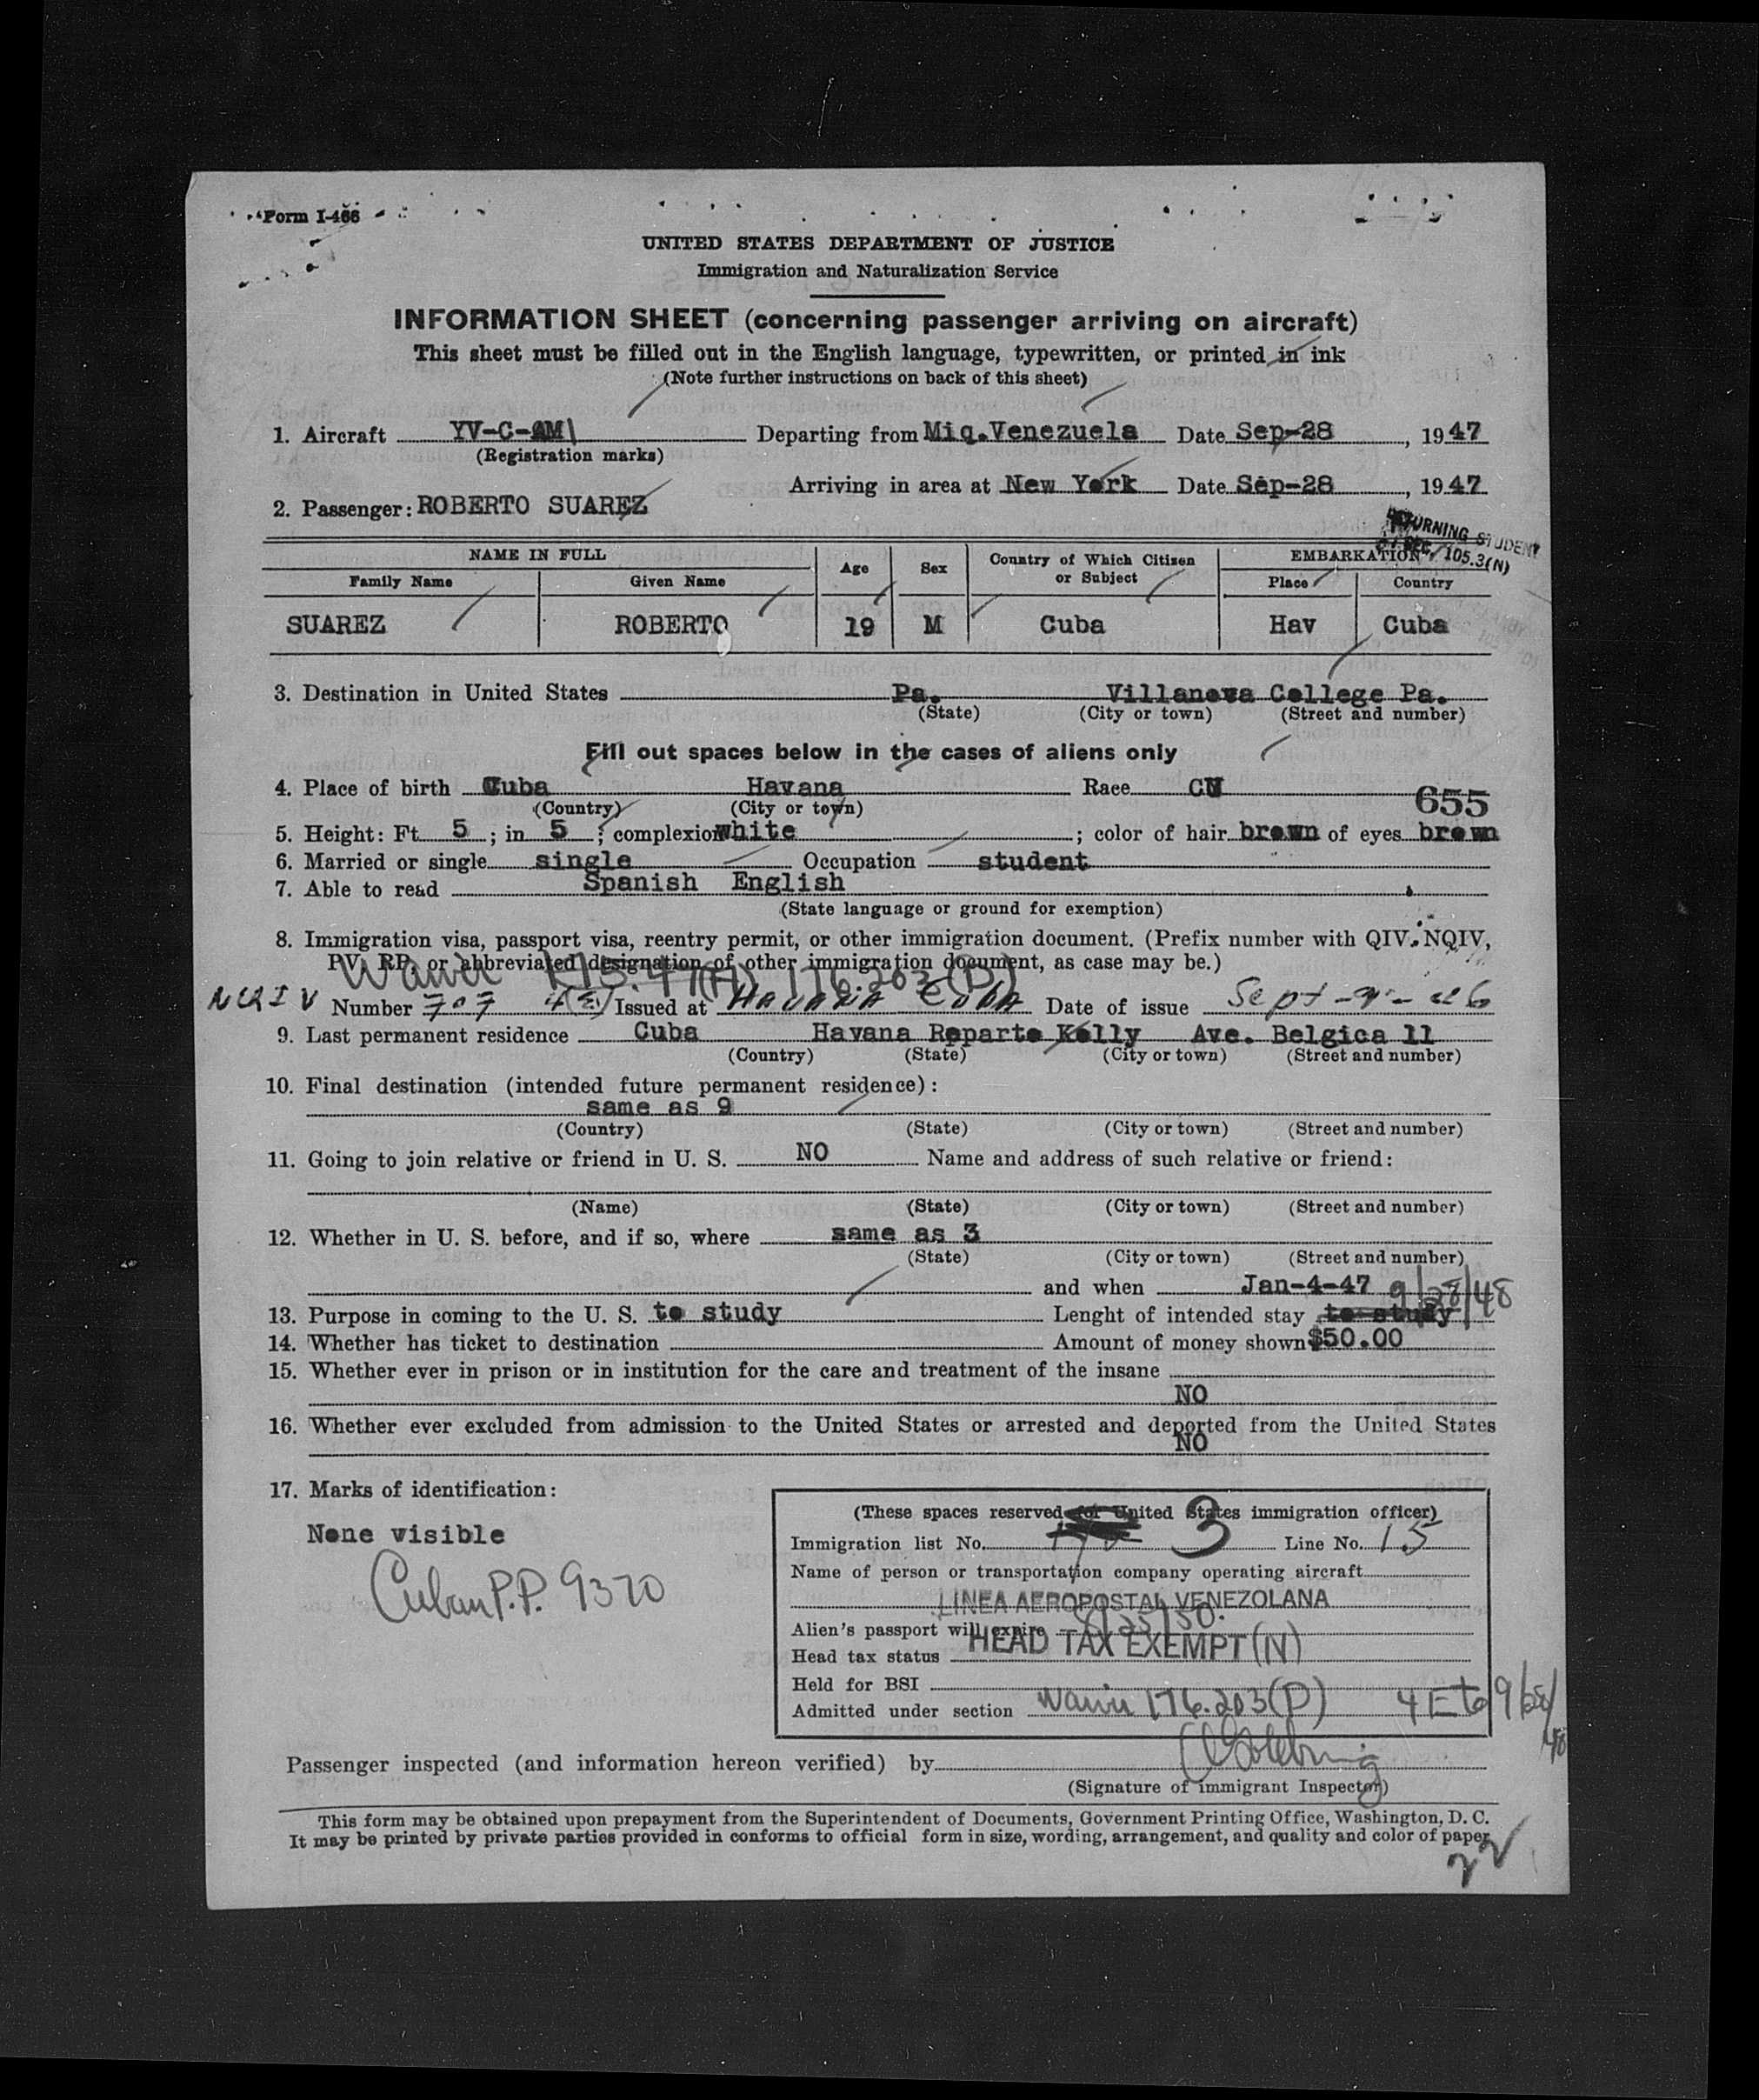 Form I-466
UNITED STATES DEPARTMENT OF JUSTICE
Immigration and Naturalization Service
INFORMATION SHEET (concerning passenger arriving on aircraft)
This sheet must be filled out in the English language, typewritten, or printed in ink
(Note further instructions on back of this sheet)
1. Aircraft YV-C-AM Departing from Miq.Venezuela Date Sep-28, 1947
(Registration marks)
Arriving in area at New York Date Sep-28, 1947
2. Passenger: ROBERTO SUAREZ
RETURNING STUDENT
SEC. 105.3(N)
NAME IN FULL Age Sex Country of Which Citizen or Subject EMBARKATION
Family Name Given Name Place Country
SUAREZ ROBERTO 19 M Cuba Hav Cuba
3. Destination in United States Pa. Villanova College Pa.
(State) (City or town) (Street and number)
Fill out spaces below in the cases of aliens only
4. Place of birth Cuba Havana Race CU
(Country) (City or town)
655
5. Height: Ft. 5; in 5; complexion white; color of hair brown of eyes brown
6. Married or single single Occupation student
7. Able to read Spanish English
(State language or ground for exemption)
8. Immigration visa, passport visa, reentry permit, or other immigration document. (Prefix number with QIV, NQIV,
PV, RP, or abbreviated designation of other immigration document, as case may be.)
175.47(H) 176.203(D)
NQIV Number 707 4(E) Issued at HAVANA CUBA Date of issue Sept
9. Last permanent residence Cuba Havana Reparto Kelly Ave. Belgica 11
(Country) (State) (City or town) (Street and number)
10. Final destination (intended future permanent residence):
same as 9
(Country) (State) (City or town) (Street and number)
11. Going to join relative or friend in U. S. NO Name and address of such relative or friend:
(Name) (State) (City or town) (Street and number)
12. Whether in U. S. before, and if so, where same as 3
(State) (City or town) (Street and number)
and when Jan-4-47
9/28/48
13. Purpose in coming to the U. S. to study Lenght of intended stay to study
14. Whether has ticket to destination Amount of money shown $50.00
15. Whether ever in prison or in institution for the care and treatment of the insane
NO
16. Whether ever excluded from admission to the United States or arrested and deported from the United States
NO
17. Marks of identification:
None visible
Cuban P.P. 9370
(These spaces reserved for United States immigration officer)
Immigration list No. 3 Line No. 15
Name of person or transportation company operating aircraft
LINEA AEROPOSTAL VENEZOLANA
Alien's passport will expire 8/25/50.
Head tax status HEAD TAX EXEMPT (N)
Held for BSI
Admitted under section 176.203(D) 4E to 9/28/48
Passenger inspected (and information hereon verified) by
(Signature of immigrant Inspector)
This form may be obtained upon prepayment from the Superintendent of Documents, Government Printing Office, Washington, D. C.
It may be printed by private parties provided in conforms to official form in size, wording, arrangement, and quality and color of paper
22